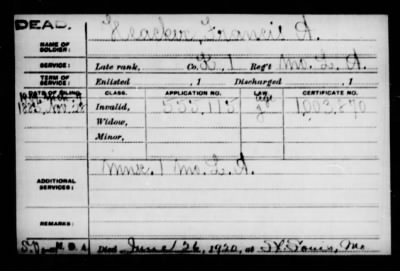 DEAD.
NAME OF SOLDIER: Francis A.
SERVICE: Late rank, Co. K. 1 Reg't Mo. L. A.
TERM OF SERVICE: Enlisted , 1 Discharged , 1
DATE OF FILING. CLASS. APPLICATION NO. LAW. CERTIFICATE NO.
Invalid, 555.115 1,003.870
Widow,
Minor,
ADDITIONAL SERVICES: 1 Mo. L. A.
Died June 26, 1920, at St Louis, Mo